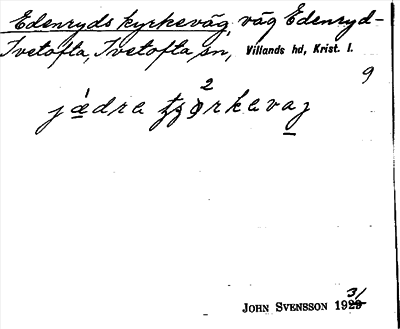 Edenryds kyrkeväg, väg Edenryd-
Ivetofta, Ivetofta sn, Villands hd, Krist. l.
9
JOHN SVENSSON 1931